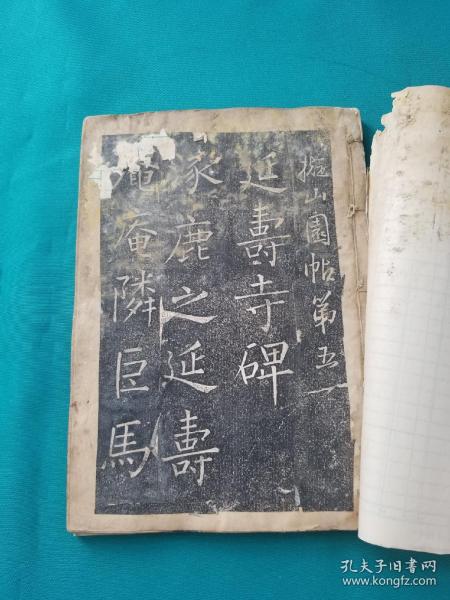 擬山園帖第五
延壽寺碑
涿鹿之延壽
庵隣臣馬
孔夫子旧书网
www.kongfz.com